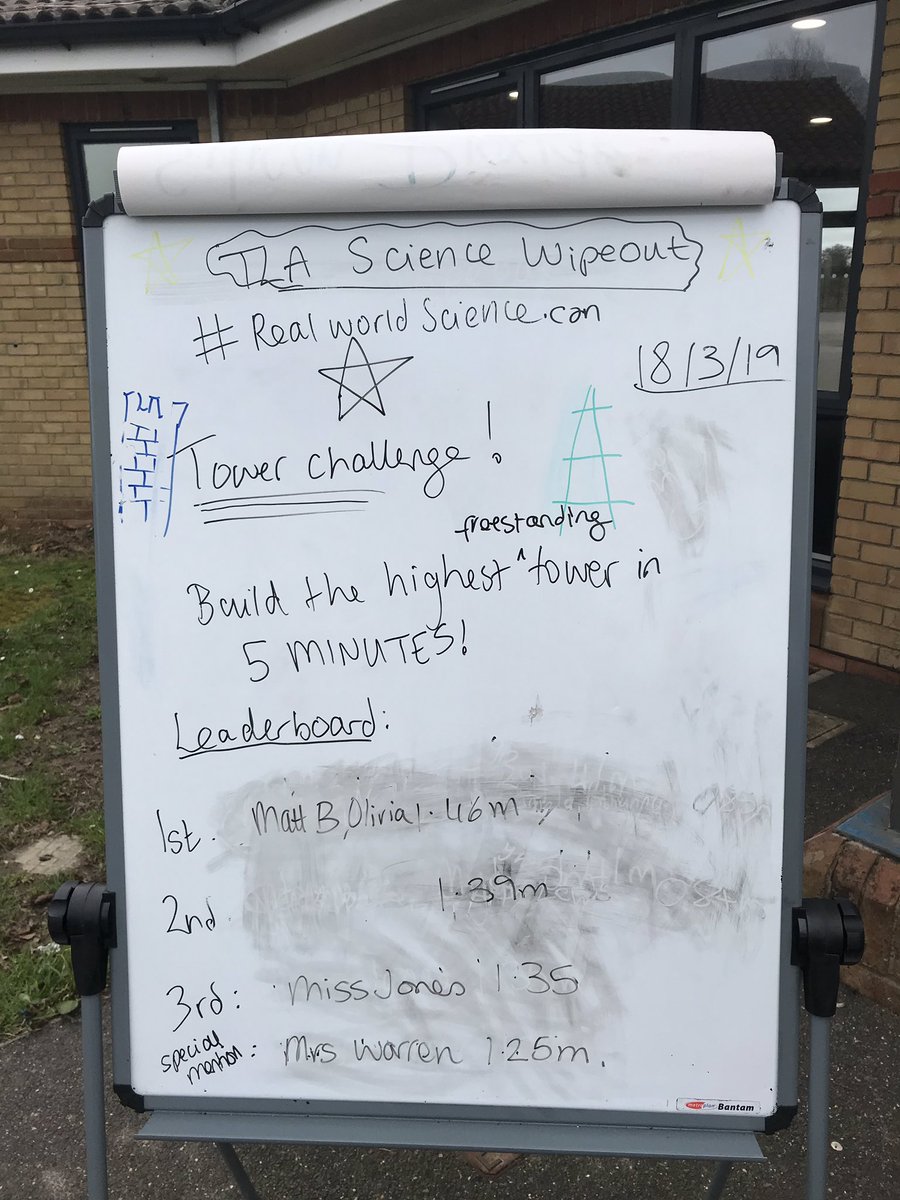 TLA Science Wipeout
#RealworldScience.com
18/3/19
Tower challenge!
freestanding
Build the highest ^ tower in
5 MINUTES!
Leaderboard:
1st. Matt B, Olivia 1.46m
2nd. 1.39m
3rd: Miss Jones 1.35
special mention: Mrs Warren 1.25m.
metroplan Bantam